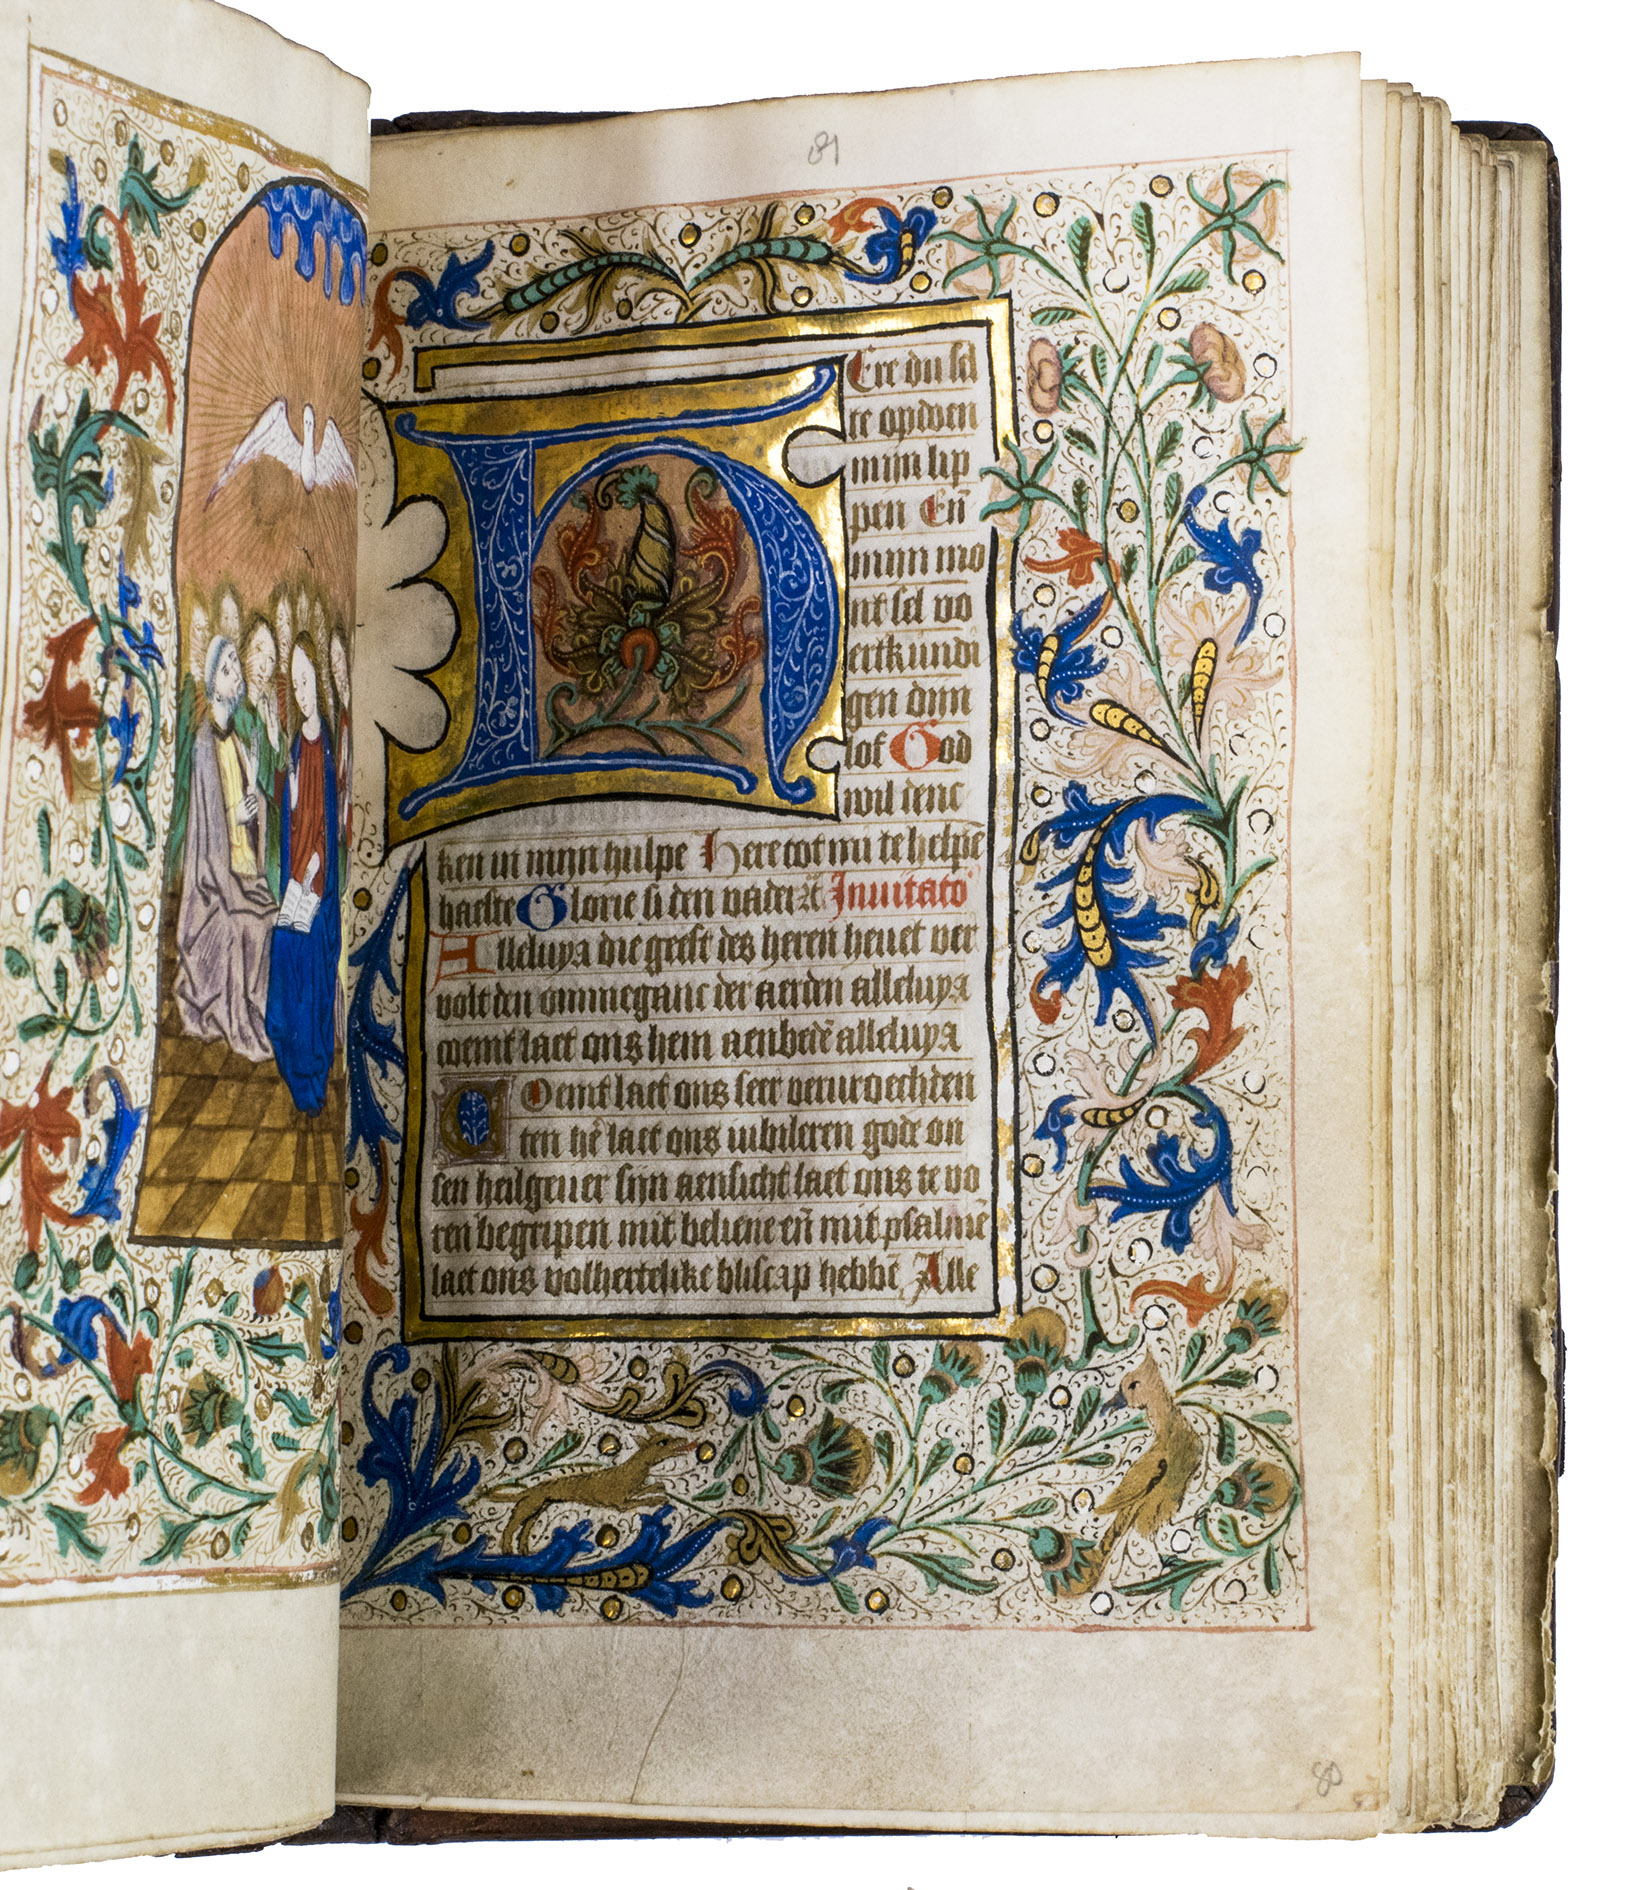 81
HEre du sel
te opdoen
mijn lip
pen Eñ
mijn mo
nt sel vo
ertkundi
gen dijn
lof God
wil denc
ken in mijn hulpe Here cot mi te helpē
haeste Glorie si den vader Inuitato
Alleluya die geest des heren heuet ver
volt den ommeganc der aerden alleluya
coemt laet ons hem aenbedē alleluya
Coemt laet ons seer vervroechden
ten hē laet ons iubileren gode on
sen heilgeuer sijn aensicht laet ons te vo
ren begripen mit beliene eñ mit psalmē
laet ons volhertelike bliscap hebbē Alle
80